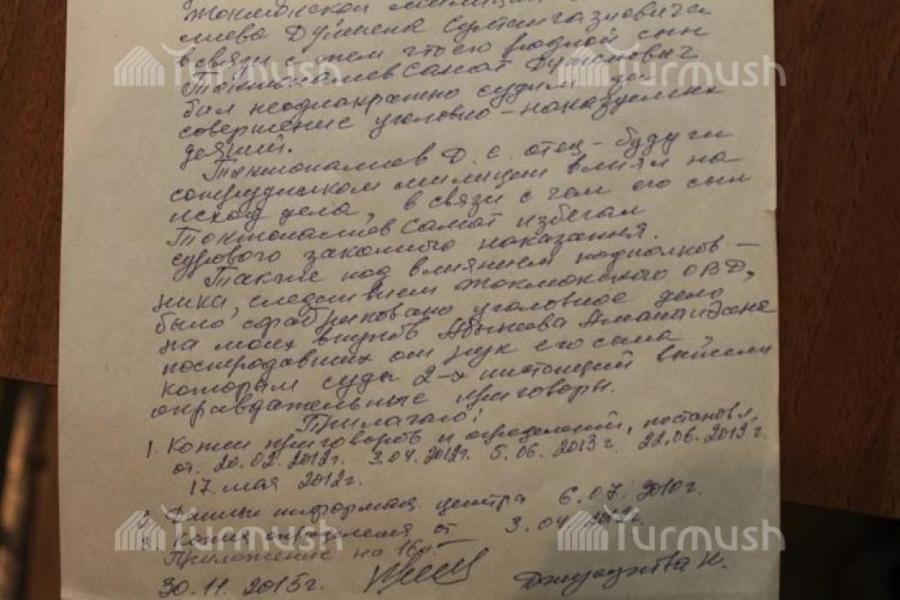 Токмокской милиции
лиева Дуйшена Султангазиевича
в связи с тем что его родной сын
Токтоналиев Самат Дуйшенович
был неоднократно судим за
совершение уголовно-наказуемых
деяний.
Токтоналиев Д. С. отец - будучи
сотрудником милиции влиял на
исход дела, в связи с чем его сын
Токтоналиев Самат избегал
сурового законного наказания.
Также под влиянием подполков-
ника, следствием Токмокского ОВД,
было сфабриковано уголовное дело
на моих внуков Абыкова Аман
пострадавших от рук его сына
которым суды 2-х инстанций вынесли
оправдательные приговоры.
Прилагаю:
1. Копии приговоров и определений, постановл.
от. 20.02.2012г. 3.04.2012г. 5.06.2013г. 22.06.2013г.
17. мая 2012г.
2. Данные информац. центра 6.07.2010г.
3. Копия определения от 3.04.2012г.
Приложение на 16
30.11.2015г. К.
Turmush
Turmush
Turmush
Turmush